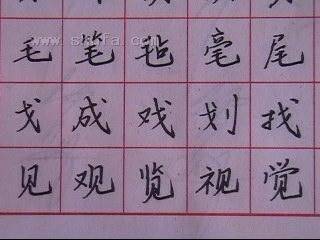 毛笔毡毫尾
戈成戏划找
见观览视觉